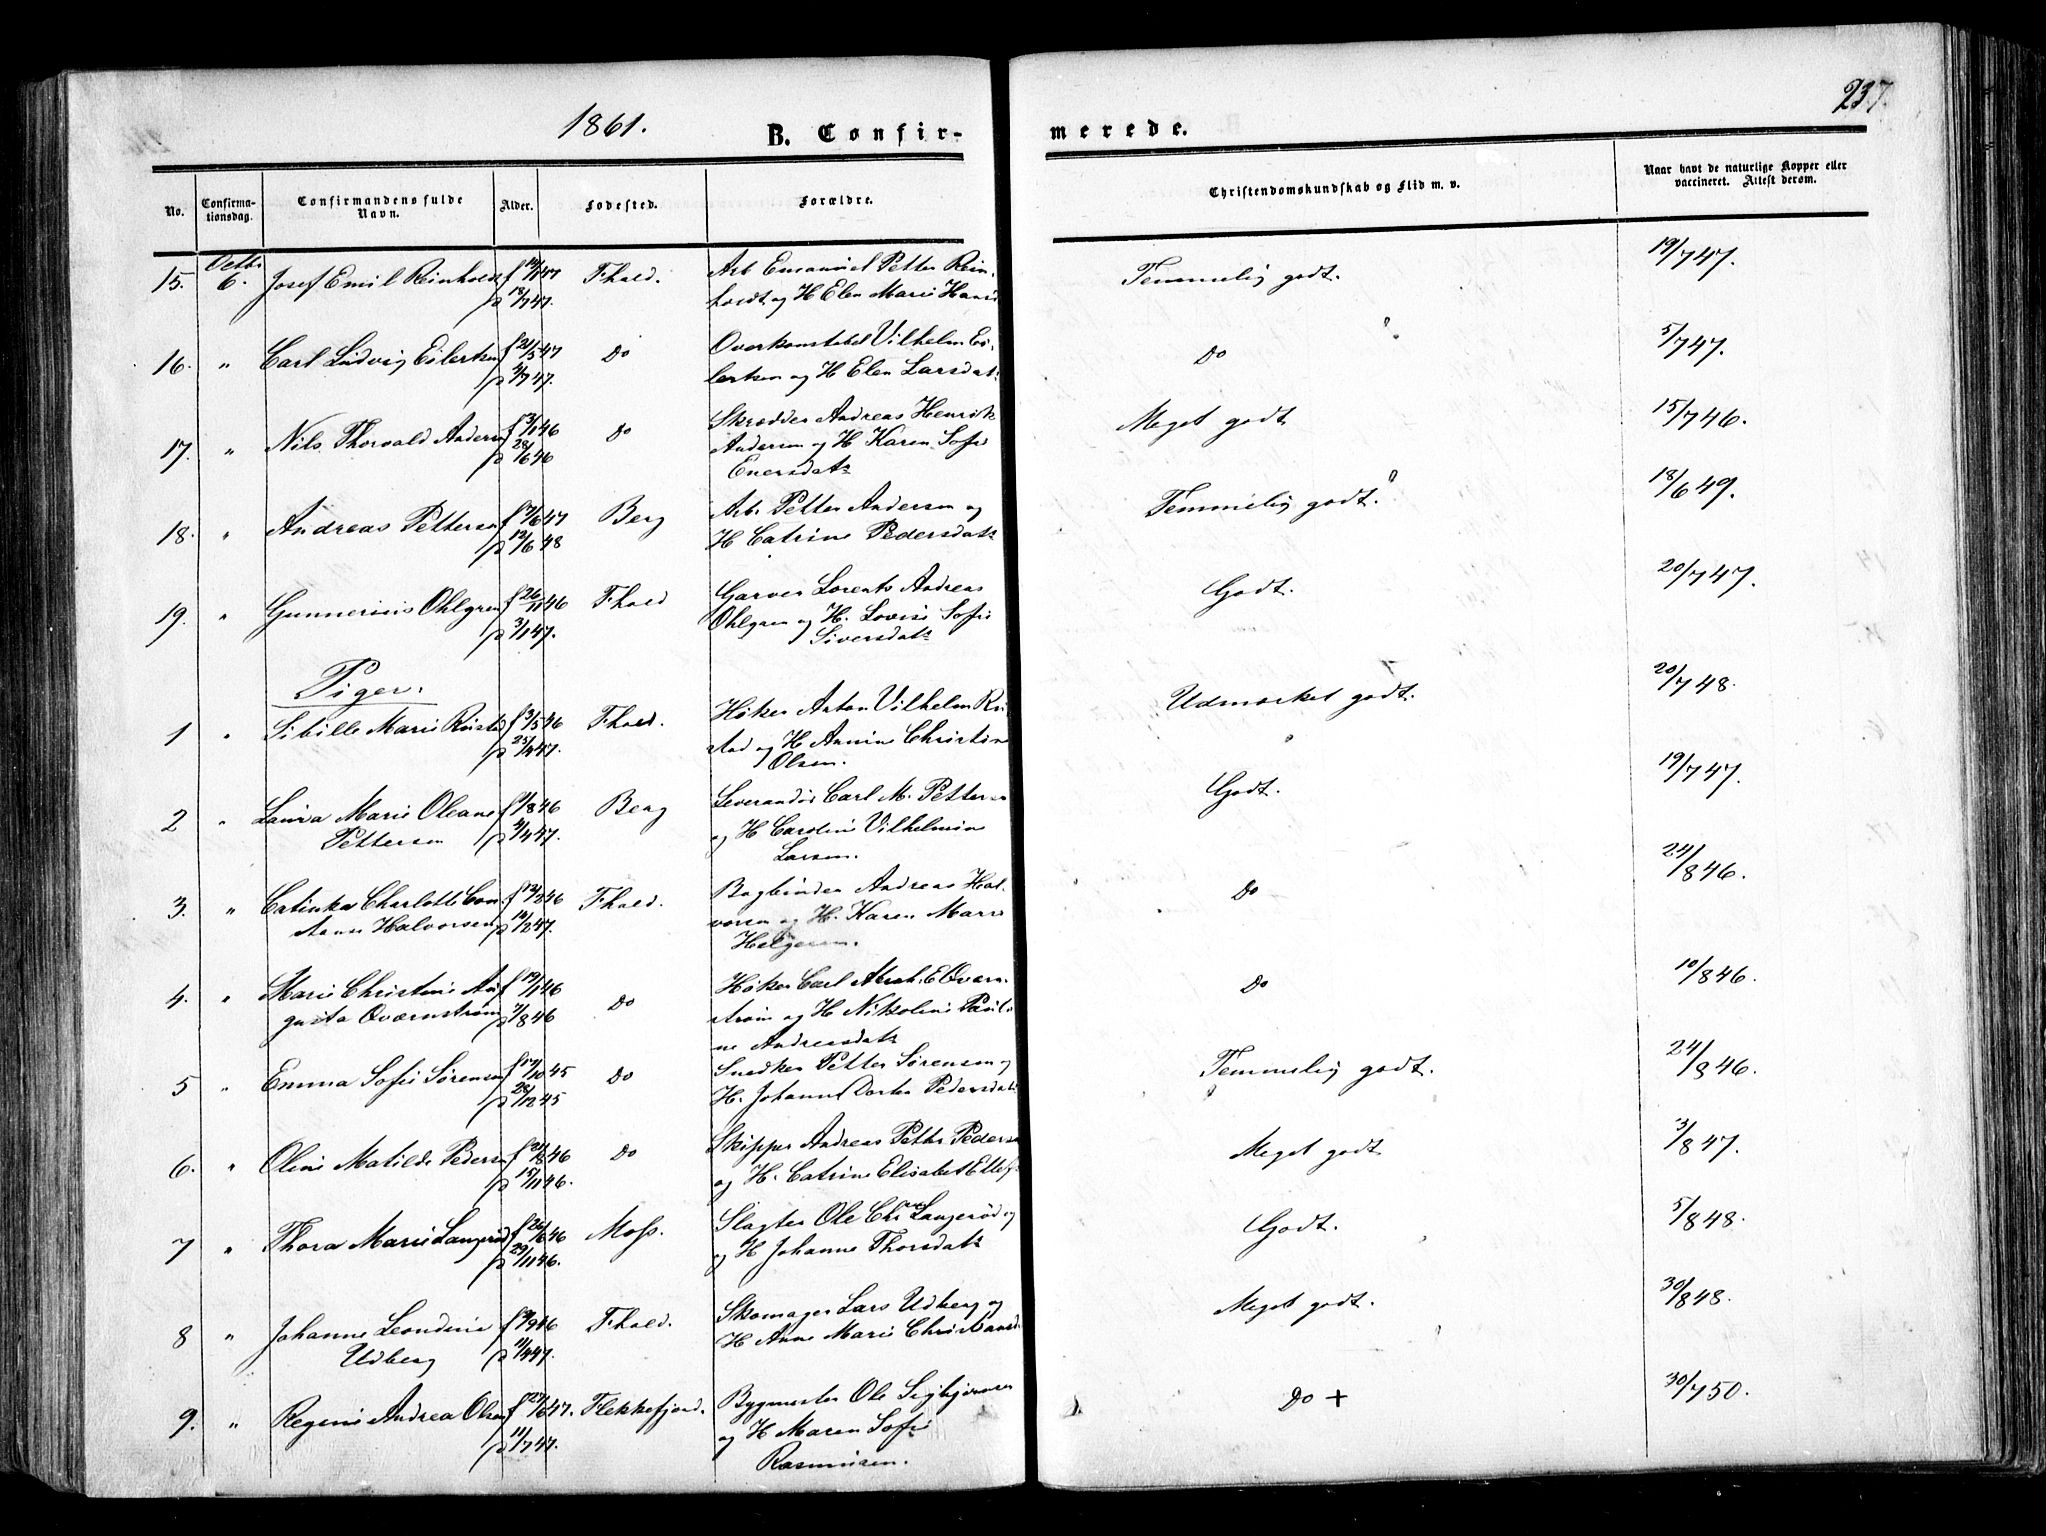 1861.
B. Confir-
merede.
237.
No.
Confirma-
tionsdag.
Confirmandens fulde
Navn.
Alder.
Fødested.
Forældre.
Christendomskundskab og Flid m. v.
Naar havt de naturlige Kopper eller
vaccineret. Attest derom.
15. Octbr 6. Josef Emil Reinholdt f 14/1 47 Fhald. Arb Emanuel Petter Rein- Temmelig godt. 19/7 47.
p 18/7 47. holdt og H Elen Marie Hansd
16. " Carl Ludvig Eilertsen f 21/5 47 Do Overkonstabel Vilhelm Ei- Do 5/7 47.
p 4/7 47. lertsen og H Elen Larsdatr
17. " Nils Thorvald Andersen f 3/1 46 Do Skrædder Andreas Henrik Meget godt 15/7 46.
p 28/6 46 Andersen og H Karen Sofie
Enersdatr
18. " Andreas Pettersen f 7/6 47 Berg Arb. Petter Andersen og Temmelig godt. 18/6 49.
p 12/6 48 H Catrine Pedersdatr
19. " Gunnerius Ohlgren f 26/11 46 Fhald Garver Lorents Andreas Godt. 20/7 47.
p 3/1 47. Ohlgren og H. Lovise Sofie
Siversdatr
Piger.
1 " Sibille Marie Rustad f 3/5 46 Fhald. Høker Anton Vilhelm Ru- Udmærket godt. 20/7 48.
p 25/4 47. stad og H Annine Christine
Olsen.
2 " Laura Marie Oleane f 9/8 46 Berg Leverandør Carl M. Pettersen Godt. 19/7 47.
Pettersen p 4/4 47. og H Caroline Vilhelmine
Larsen.
3. " Catinka Charlotte Con f 12/2 46 Fhald. Bogbinder Andreas Hal- Do 24/8 46.
Halvorsen p 14/2 47. vorsen og H. Karen Marie
Helgesen.
4. " Marie Christine Au f 19/1 46 Do Høker Carl Abrah. E Qværn- Do 10/8 46.
gusta Qværnstrøm p 7/8 46 strøm og H Nikoline Pauli
ne Andreasdatr
5 " Emma Sofie Sørensen f 17/10 45 Do Snedker Petter Sørensen og Temmelig godt. 24/8 46.
p 28/12 45 H. Johanne Dortea Pedersdatr
6. " Oline Matilde Pedersen f 21/8 46 Do Skipper Andreas Petter Pedersen Meget godt 3/8 47.
p 15/11 46. og H. Catrine Elisabet
7 " Thora Marie Langerød f 26/6 46 Moss. Slagter Ole Chr Langerød og Godt. 5/8 48.
p 29/11 46. og H Johanne Thorsdatr
8 " Johanne Leondine f 9/9 46 Fhald. Skomager Lars Udberg og Meget godt. 30/8 48.
Udberg p 11/4 47. H Anne Marie Christiansd
9. " Regine Andrea Olsen f 27/6 47. Flekkefjord. Bygmester Ole Sigbjørnsen Do + 30/7 50.
p 11/7 47. og H Maren Sofie
Rasmusen.